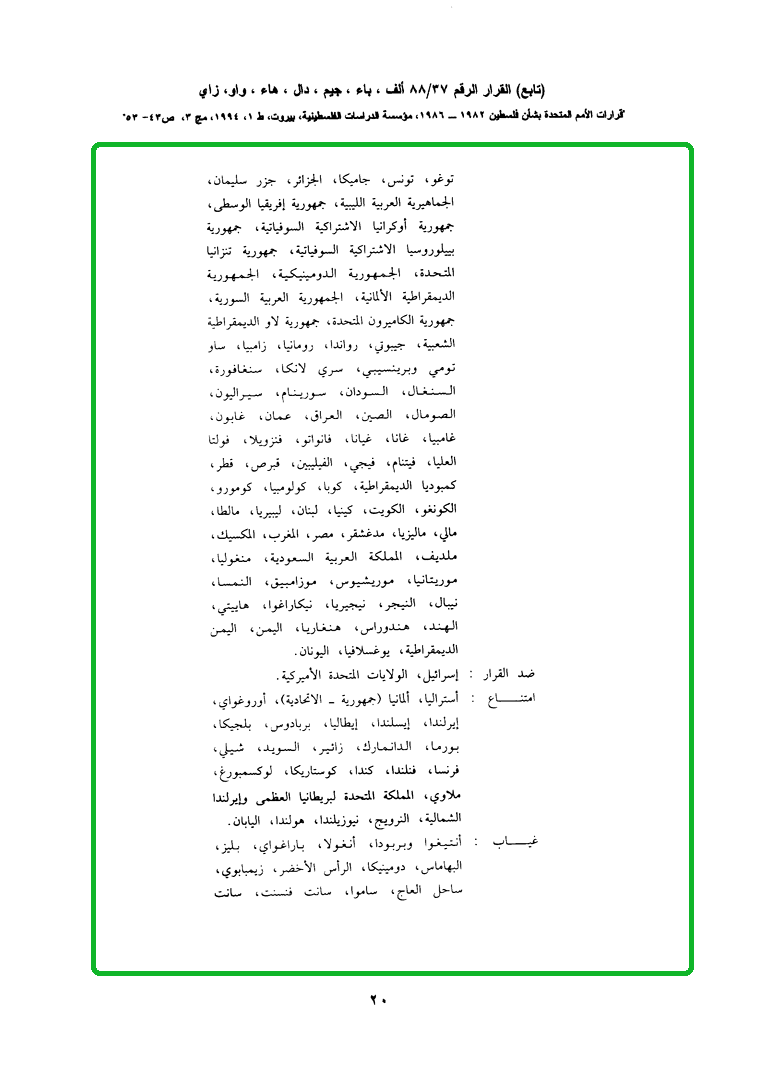 (تابع) القرار الرقم ٨٨/٣٧ ألف ، باء ، جيم ، دال ، هاء ، واو، زاي
"قرارات الأمم المتحدة بشأن فلسطين ١٩٨٢ ــ ١٩٨٦، مؤسسة الدراسات الفلسطينية، بيروت، ط ١، ١٩٩٤، مج ٣، ص٤٣- ٥٣"
توغو، تونس، جاميكا، الجزائر، جزر سليمان،
الجماهيرية العربية الليبية، جمهورية إفريقيا الوسطى،
جمهورية أوكرانيا الاشتراكية السوفياتية، جمهورية
بييلوروسيا الاشتراكية السوفياتية، جمهورية تنزانيا
المتحدة، الجمهورية الدومينيكية، الجمهورية
الديمقراطية الألمانية، الجمهورية العربية السورية،
جمهورية الكاميرون المتحدة، جمهورية لاو الديمقراطية
الشعبية، جيبوتي، رواندا، رومانيا، زامبيا، ساو
تومي وبرينسيبي، سري لانكا، سنغافورة،
السنغال، السودان، سورينام، سيراليون،
الصومال، الصين، العراق، عمان، غابون،
غامبيا، غانا، غيانا، فانواتو، فنزويلا، فولتا
العليا، فيتنام، فيجي، الفيليبين، قبرص، قطر،
كمبوديا الديمقراطية، كوبا، كولومبيا، كومورو،
الكونغو، الكويت، كينيا، لبنان، ليبيريا، مالطا،
مالي، ماليزيا، مدغشقر، مصر، المغرب، المكسيك،
ملديف، المملكة العربية السعودية، منغوليا،
موريتانيا، موريشيوس، موزامبيق، النمسا،
نيبال، النيجر، نيجيريا، نيكاراغوا، هاييتي،
الهند، هندوراس، هنغاريا، اليمن، اليمن
الديمقراطية، يوغسلافيا، اليونان.
ضد القرار : إسرائيل، الولايات المتحدة الأميركية.
امتنــــاع : أستراليا، ألمانيا (جمهورية ــ الاتحادية)، أوروغواي،
إيرلندا، إيسلندا، إيطاليا، بربادوس، بلجيكا،
بورما، الدانمارك، زائير، السويد، شيلي،
فرنسا، فنلندا، كندا، كوستاريكا، لوكسمبورغ،
ملاوي، المملكة المتحدة لبريطانيا العظمى وإيرلندا
الشمالية، النرويج، نيوزيلندا، هولندا، اليابان.
غيــــاب : أنتيغوا وبربودا، أنغولا، باراغواي، بليز،
البهاماس، دومينيكا، الرأس الأخضر، زيمبابوي،
ساحل العاج، ساموا، سانت فنسنت، سانت
٢٠